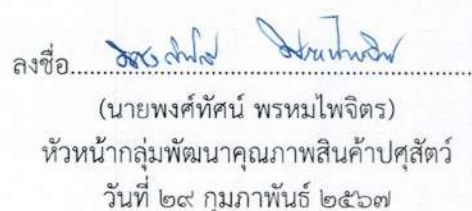 ลงชื่อ
(นายพงศ์ทัศน์ พรหมไพจิตร)
หัวหน้ากลุ่มพัฒนาคุณภาพสินค้าปศุสัตว์
วันที่ ๒๙ กุมภาพันธ์ ๒๕๖๗